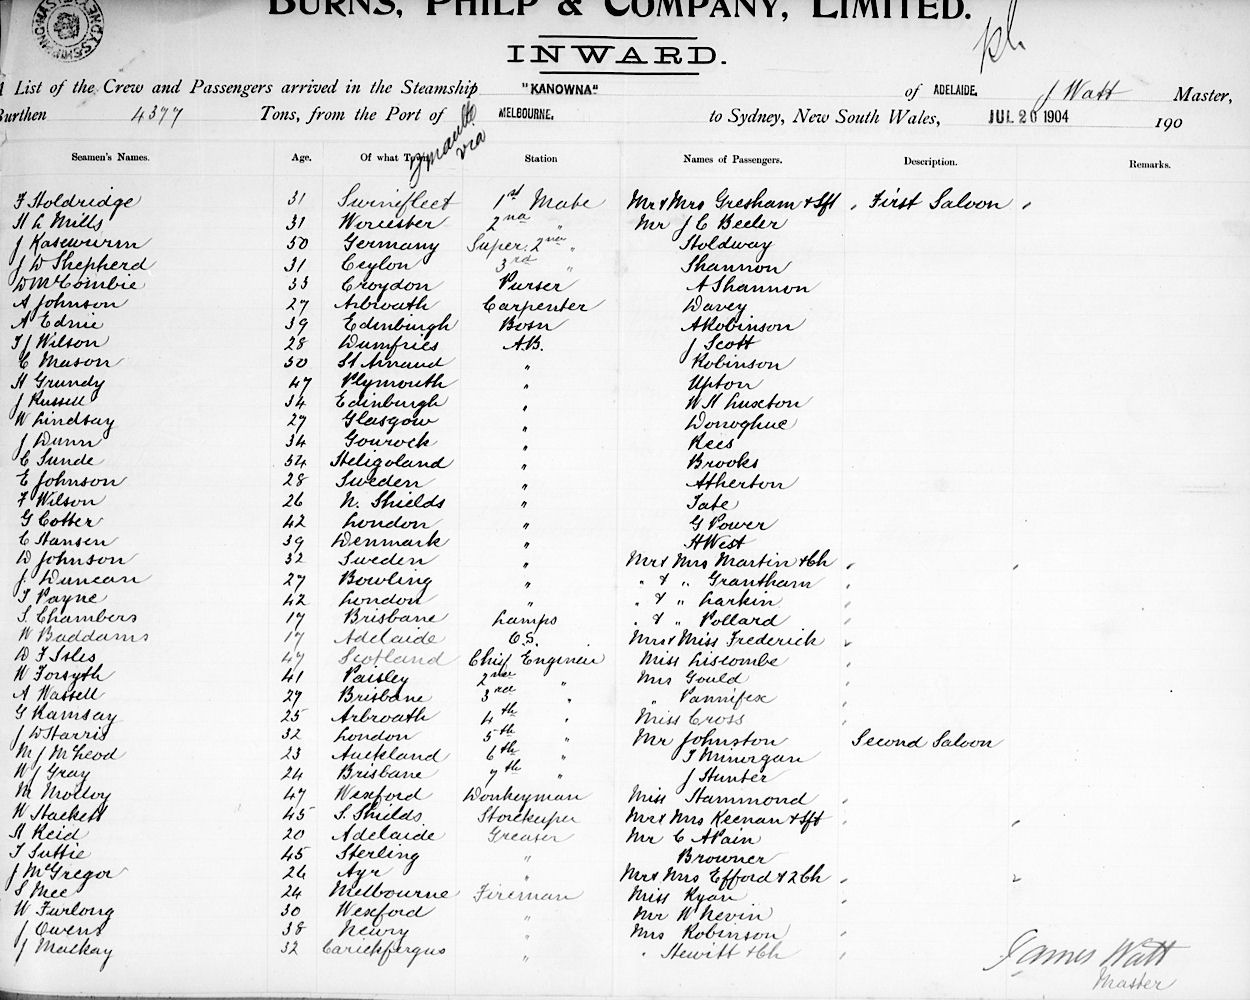 BURNS, PHILP & COMPANY, LIMITED.
INWARD.
A List of the Crew and Passengers arrived in the Steamship "KANOWNA" of ADELAIDE. J Watt Master,
Burthen 4377 Tons, from the Port of Fremantle via MELBOURNE. to Sydney, New South Wales, JUL 20 1904 190
Seamen's Names. Age. Of what Town Station Names of Passengers. Description. Remarks.
F Holdridge 31 Swinefleet 1st Mate Mr & Mrs Gresham & Sft " First Saloon "
H L Mills 31 Worcester 2nd " Mr J C Beeler
J Kasewurm 50 Germany Super. 2nd " Holdway
J D Shepherd 31 Ceylon 3rd " Shannon
D McCombie 33 Croydon Purser A Shannon
A Johnson 27 Arbroath Carpenter Davey
A Ednie 39 Edinburgh Bosn A Robinson
T J Wilson 28 Dumfries A.B. J Scott
C Mason 50 St Arnaud " Robinson
H Grundy 47 Plymouth " Upton
J Russell 34 Edinburgh " W H Luxton
W Lindsay 27 Glasgow " Donoghue
J Dunn 34 Gourock " Rees
C Sunde 54 Heligoland " Brooks
E Johnson 28 Sweden " Atherton
F Wilson 26 N. Shields " Tate
G Cotter 42 London " G Power
C Hansen 39 Denmark " H West
D Johnson 32 Sweden " Mr & Mrs Martin & Ch " "
J. Duncan 27 Bowling " " & " Grantham "
T Payne 42 London " " & " Larkin "
S Chambers 17 Brisbane Lamps " & " Pollard "
W Baddams 17 Adelaide O.S. Mrs & Miss Frederick "
D F Isles 47 Scotland Chief Engineer Miss Liscombe "
W Forsyth 41 Paisley 2nd " Mrs Gould "
A Wassell 27 Brisbane 3rd " " Pannifex "
G Ramsay 25 Arbroath 4th " Miss Cross "
J W Harris 32 London 5th " Mr Johnston Second Saloon
M J McLeod 23 Auckland 6th " T Minorgan
W J Gray 24 Brisbane 7th " J Hunter
M Molloy 47 Wexford Donkeyman Miss Hammond "
W Hackett 45 S. Shields Storekeeper Mr & Mrs Keenan & Sft " "
A Reid 20 Adelaide Greaser Mr C A Pain
T Suttie 45 Sterling " Browner
J McGregor 26 Ayr " Mr & Mrs Efford & 2 Ch " "
S Mee 24 Melbourne Fireman Miss Ryan "
W Furlong 30 Wexford " Mr W Nevin
J Owens 38 Newry " Mrs Robinson "
J Mackay 32 Carickfergus " " Hewitt & Ch "
James Watt
Master